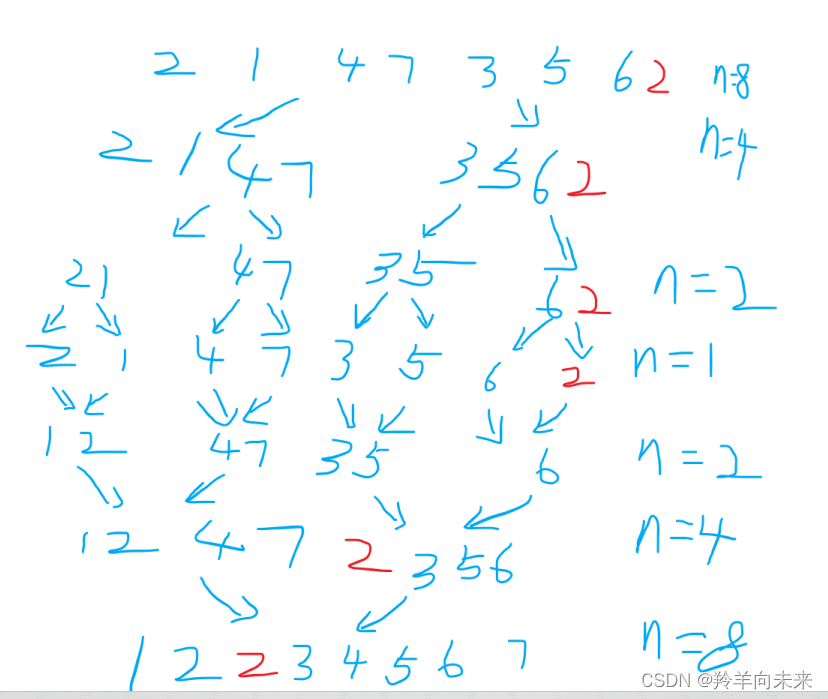 2 1 4 7 3 5 6 2 n=8
2 1 4 7 3 5 6 2 n=4
2 1 4 7 3 5 6 2 n=2
2 1 4 7 3 5 6 2 n=1
1 2 4 7 3 5 6 n=2
1 2 4 7 2 3 5 6 n=4
1 2 2 3 4 5 6 7 n=8
CSDN @羚羊向未来